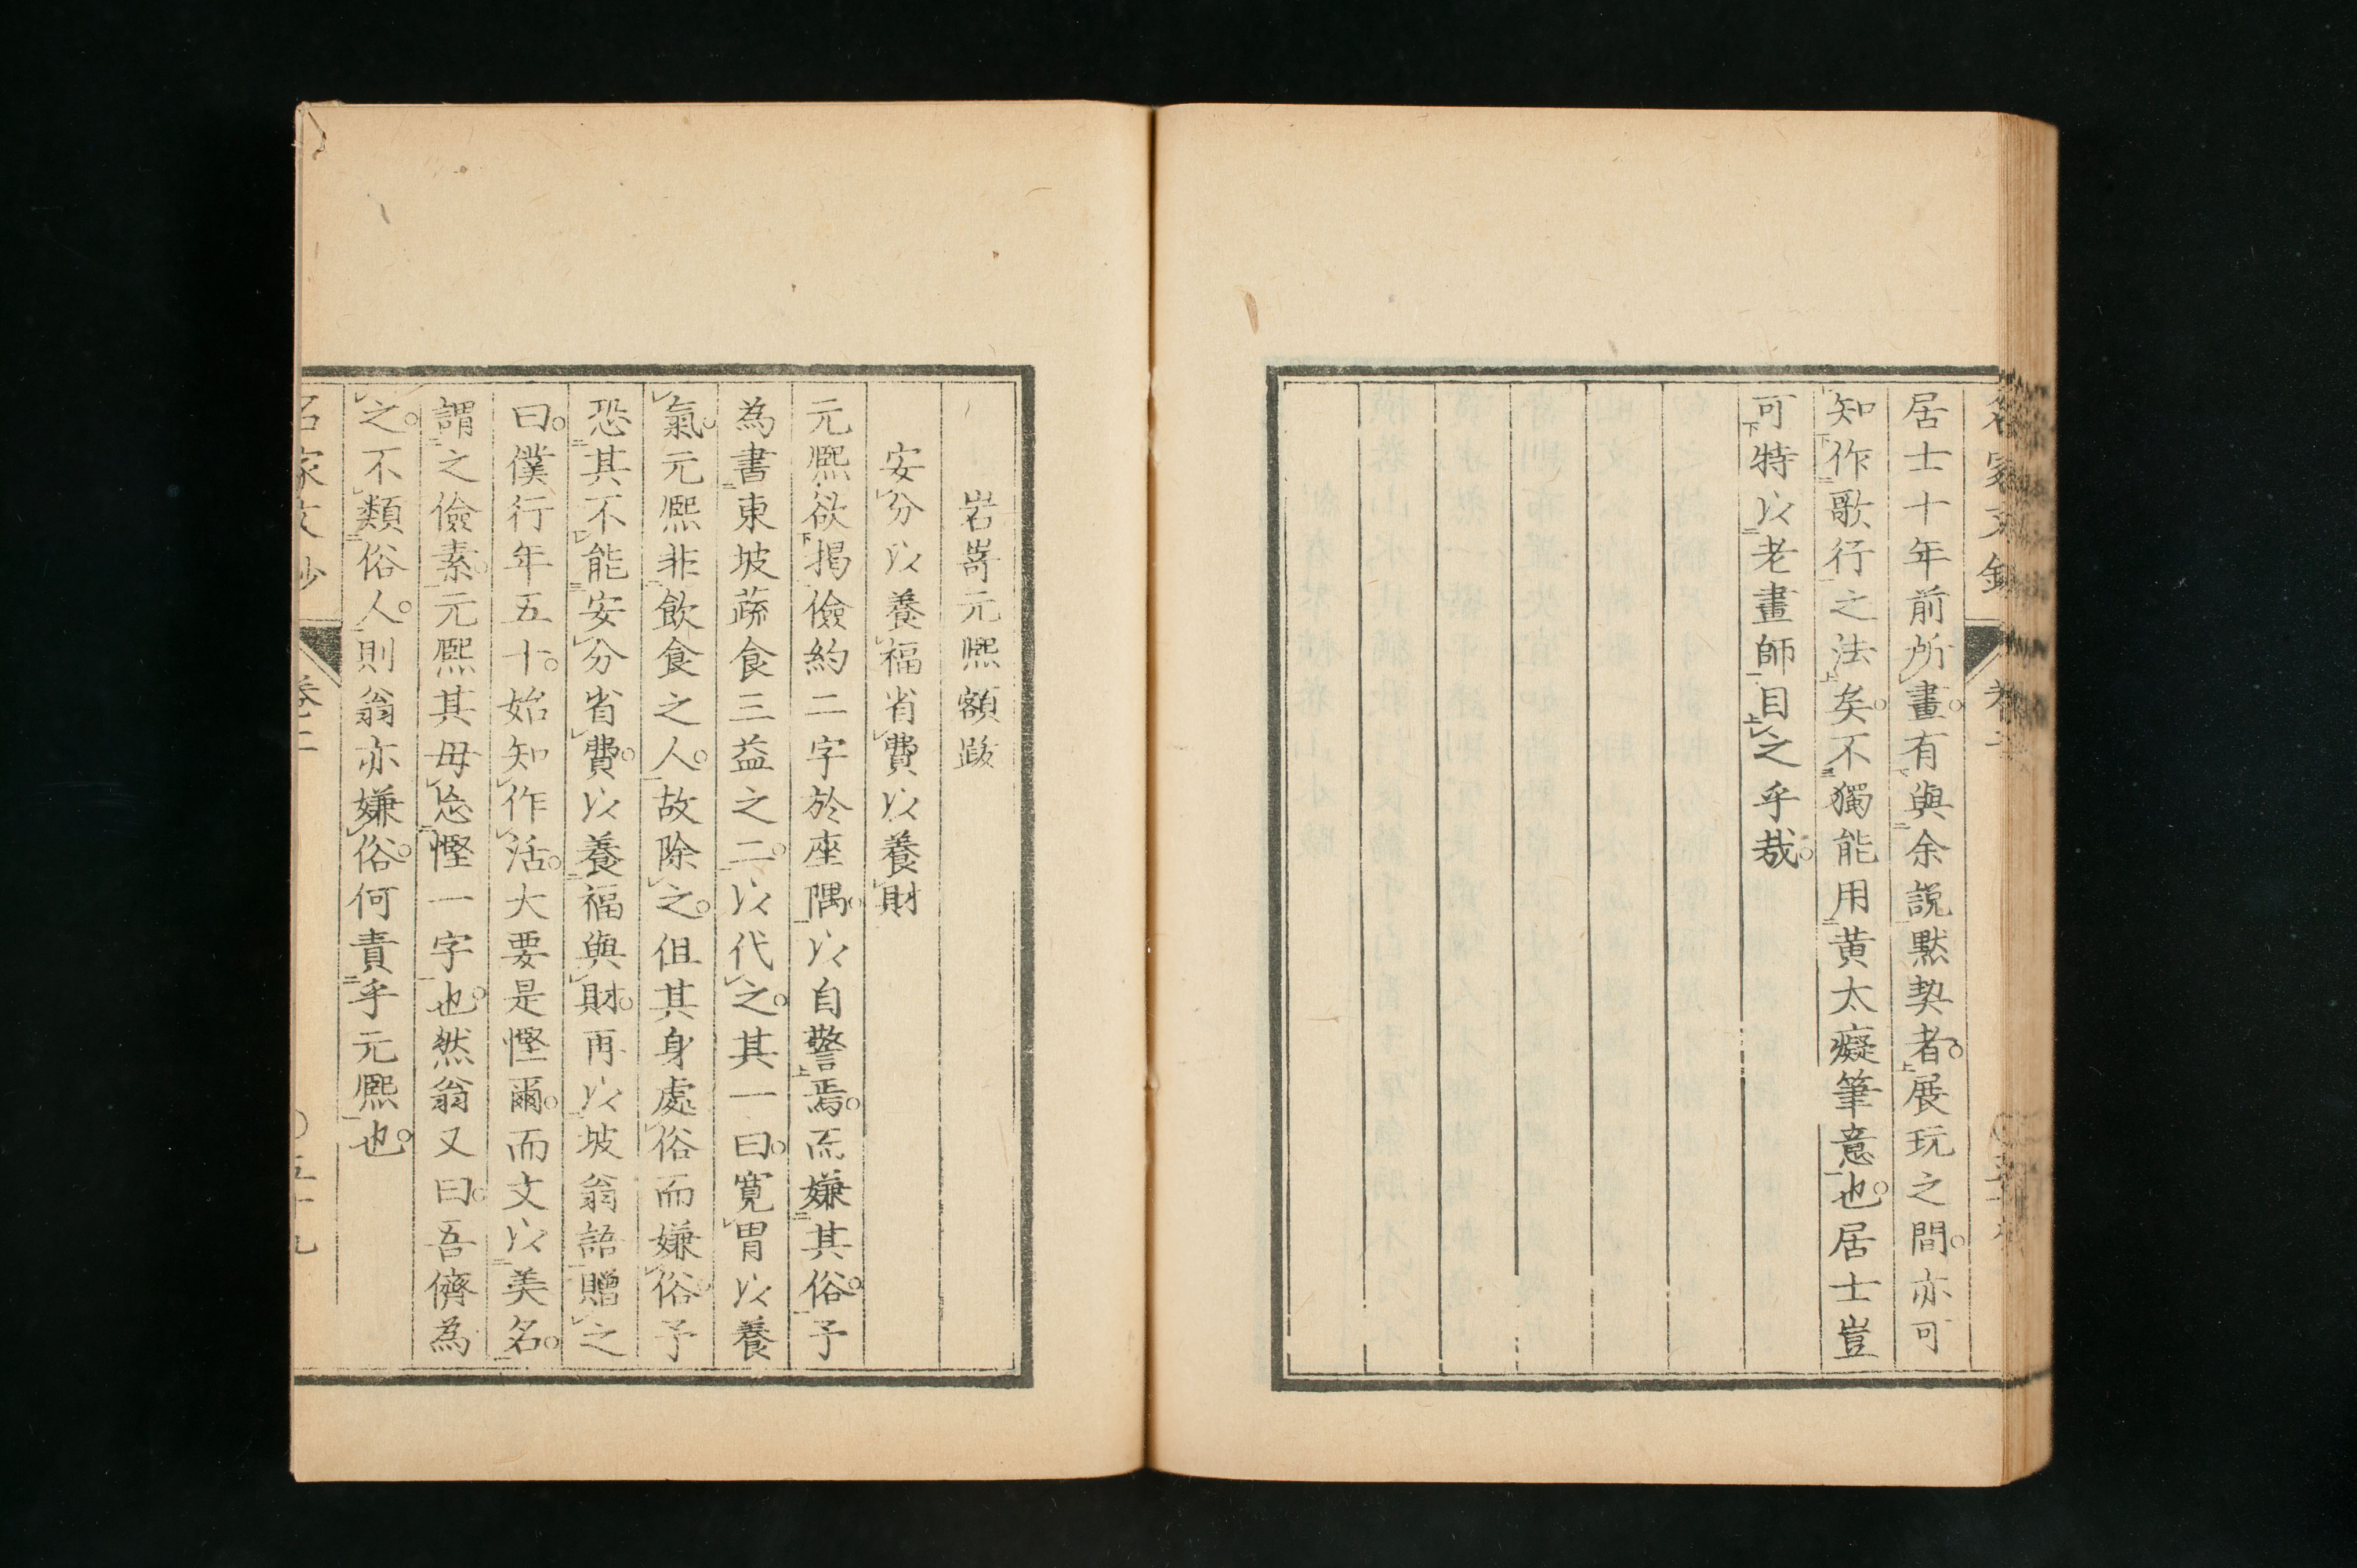 居士十年前所畫。有與余説默契者。展玩之間。亦可
知作歌行之法矣。不獨能用黄太癡筆意也。居士豈
可特以老畫師目之乎哉。
岩嵜元熈額跋
安分以養福省費以養財
元熈欲掲儉約二字於座隅。以自警焉。而嫌其俗。予
為書東坡蔬食三益之二。以代之。其一曰。寛胃以養
氣。元熈非飲食之人。故除之。但其身處俗而嫌俗。予
恐其不能安分省費。以養福與財。再以坡翁語贈之
曰。僕行年五十。始知作活。大要是慳爾。而文以美名。
謂之儉素。元熈其毋忘慳一字也。然翁又曰。吾儕為
之。不類俗人。則翁亦嫌俗。何責乎元熈也。
名家文抄 卷二 〇五十九